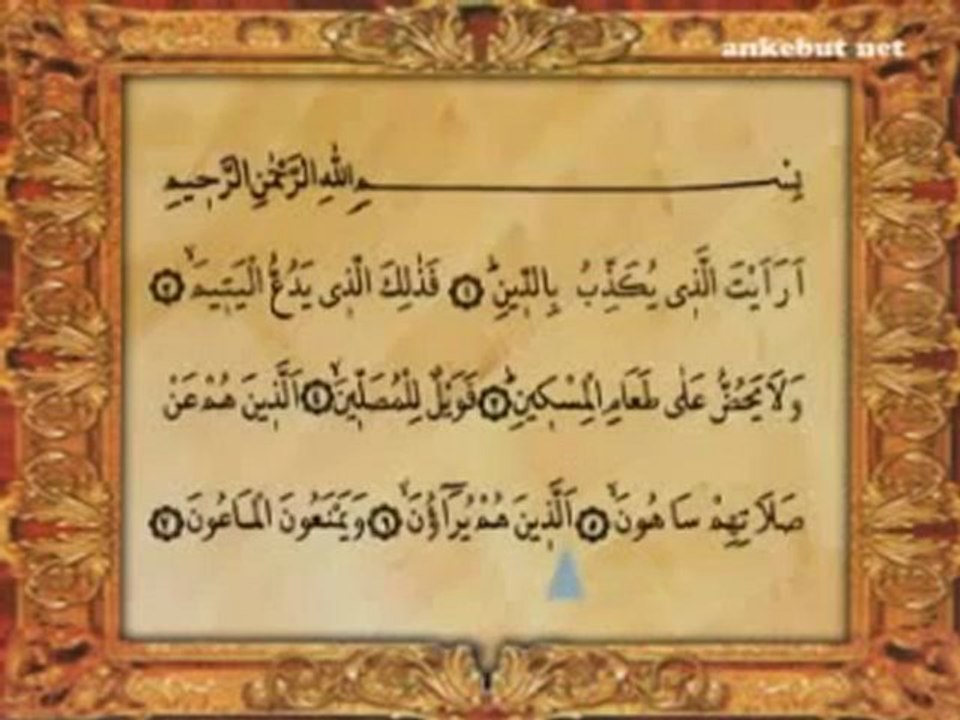 ankebut net
بِسْمِ اللّٰهِ الرَّحْمٰنِ الرَّحِيمِ
اَرَاَيْتَ الَّذِى يُكَذِّبُ بِالدّ۪ينِۜ ﴿١﴾ فَذٰلِكَ الَّذِى يَدُعُّ الْيَت۪يمَۙ ﴿٢﴾
وَلَا يَحُضُّ عَلٰى طَعَامِ الْمِسْك۪ينِۜ ﴿٣﴾ فَوَيْلٌ لِلْمُصَلّ۪ينَۙ ﴿٤﴾ اَلَّذ۪ينَ هُمْ عَنْ
صَلَاتِهِمْ سَاهُونَۙ ﴿٥﴾ اَلَّذ۪ينَ هُمْ يُرَٓاؤُ۫نَۙ ﴿٦﴾ وَيَمْنَعُونَ الْمَاعُونَ ﴿٧﴾